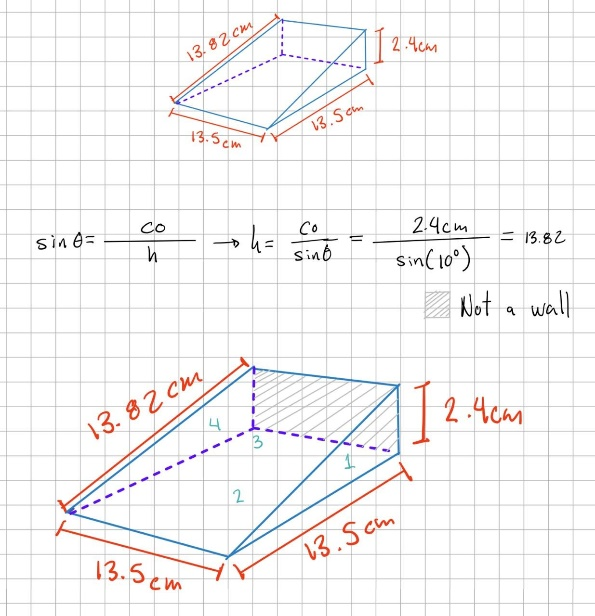 13.82cm
2.4cm
13.5cm
13.5cm
sin θ = co / h → h = co / sinθ = 2.4cm / sin(10°) = 13.82
Not a wall
13.82cm
2.4cm
4
3
1
2
13.5cm
13.5cm